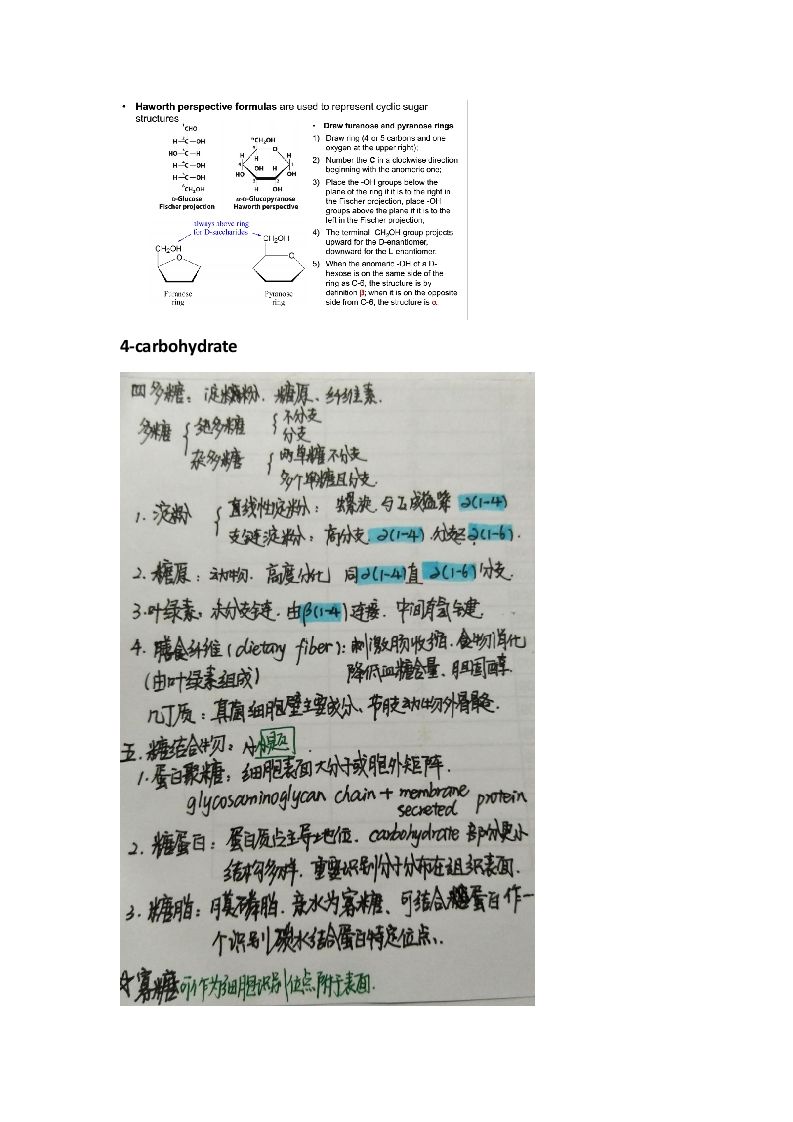 • Haworth perspective formulas are used to represent cyclic sugar
structures
¹CHO
H–²C–OH
HO–³C–H
H–⁴C–OH
H–⁵C–OH
⁶CH₂OH
D-Glucose
Fischer projection
⁶CH₂OH
5
O
H
H
H
4
1
OH
H
HO
OH
3
2
H
OH
α-D-Glucopyranose
Haworth perspective
always above ring
for D-saccharides
CH₂OH
O
Furanose
ring
CH₂OH
O
Pyranose
ring
• Draw furanose and pyranose rings
1) Draw ring (4 or 5 carbons and one
oxygen at the upper right);
2) Number the C in a clockwise direction
beginning with the anomeric one;
3) Place the -OH groups below the
plane of the ring if it is to the right in
the Fischer projection, place -OH
groups above the plane if it is to the
left in the Fischer projection;
4) The terminal -CH₂OH group projects
upward for the D-enantiomer,
downward for the L-enantiomer.
5) When the anomeric -OH of a D-
hexose is on the same side of the
ring as C-6, the structure is by
definition β; when it is on the opposite
side from C-6, the structure is α.
4-carbohydrate
四 多糖：淀粉、糖原、纤维素.
多糖 { 纯多糖 { 不分支
分支
杂多糖 { 两单糖不分支
多个单糖且分支.
1. 淀粉 { 直线性淀粉：螺旋 与I₂成蓝紫 α(1-4)
支链淀粉：高分支. α(1-4) 分支α(1-6).
2. 糖原：动物. 高度分化 同α(1-4)直 α(1-6)分支.
3. 叶绿素：未分支链. 由β(1-4)连接. 中间有氢键.
4. 膳食纤维 (dietary fiber)：刺激肠收缩. 食物消化
(由叶绿素组成) 降低血糖含量、胆固醇.
几丁质：真菌细胞壁主要成分、节肢动物外骨骼.
五. 糖结合物：
1. 蛋白聚糖：细胞表面大分子或胞外矩阵.
glycosaminoglycan chain + membrane
secreted protein
2. 糖蛋白：蛋白质占主导地位. carbohydrate 部分更小
结构多样. 重要识别分子分布在组织表面.
3. 糖脂：膜磷脂. 亲水为寡糖、可结合糖蛋白作一
个识别碳水结合蛋白特定位点.
☆寡糖可作为细胞识别位点附于表面.